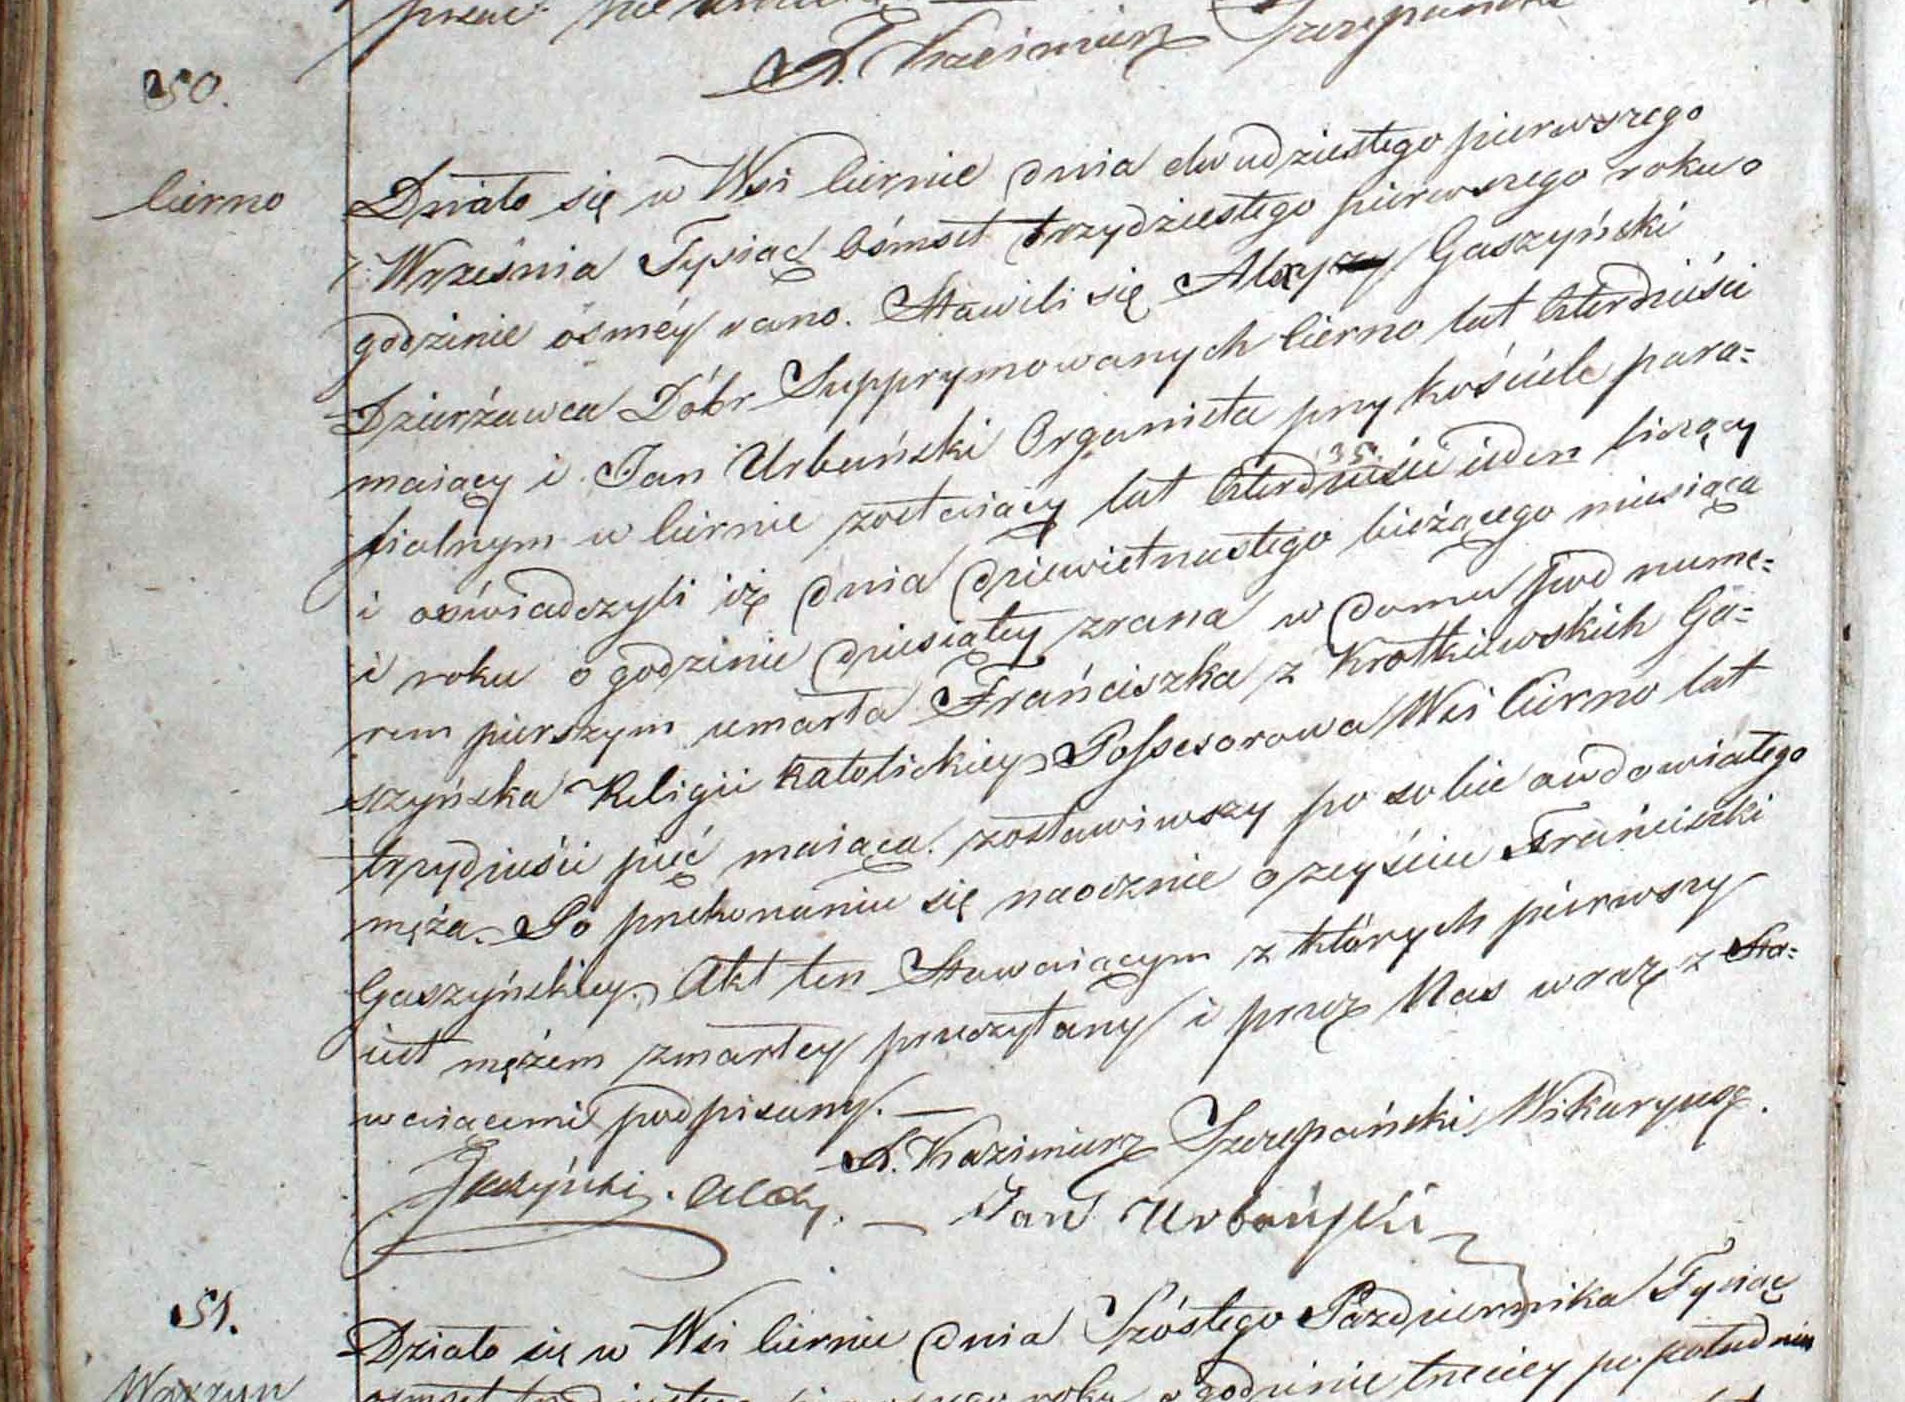 X. Kazimierz Szczepański
50.
Cierno
Działo się w Wsi Ciernie dnia dwudziestego pierwszego
Września Tysiąc Ośmset trzydziestego pierwszego roku o
godzinie ósméy rano. Stawili się Alexy Gaszyński
Dzierżawca Dóbr Supprymowanych Cierno lat Czterdzieści
maiący i Jan Urbański Organista przy kościele para=
fialnym w Ciernie zostaiący lat Czterdzieści ieden liczący
35
i oświadczyli iż dnia dziewiętnastego bieżącego miesiąca
i roku o godzinie dziesiątey zrana w domu pod nume=
rem pierszym umarła Frańciszka z Krotkiewskich Ga=
szyńska Religii katolickiey Possesorowa Wsi Cierno lat
trzydzieści pięć maiąca. zostawiwszy po sobie owdowiałego
męża. Po przekonaniu się naocznie o zeyściu Frańciszki
Gaszyńskiey. Akt ten Stawaiącym z których pierwszy
iest mężem zmarłey przeczytany i przez Nas wraz z Sta=
waiącemi podpisany. —
X. Kazimierz Szczepański Wikaryusz.
Gaszyński. Alexy. — Jan Urbański
51.
Działo się w Wsi Ciernie dnia Szóstego Października Tysiąc
Warzyn
ośmset trzydziestego pierwszego roku o godzinie trzeciey po południu